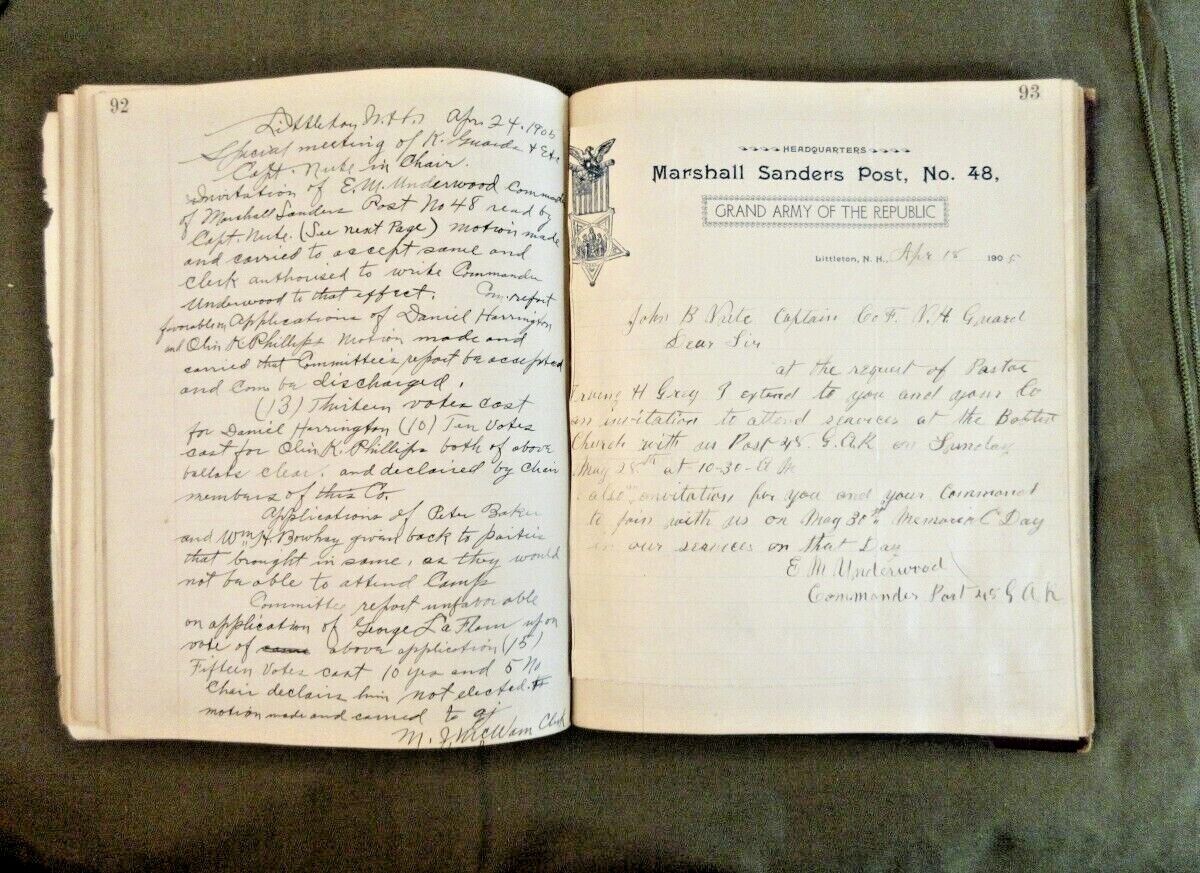 92
Littleton N.H. Apr 24, 1905
Special meeting of K. Guards & Etc
Capt. Nute in Chair.
Invitation of E. M. Underwood Commander
of Marshall Sanders Post No 48 read by
Capt. Nute. (See next Page) motion made
and carried to accept same and
clerk authorised to write Commander
Underwood to that effect. Com. report
favorable Applications of Daniel Harrington
and Olin K Phillips Motion made and
carried that Committees report be accepted
and Com be discharged.
(13) Thirteen votes cast
for Daniel Harrington (10) Ten Votes
cast for Olin K. Phillips both of above
ballots clear, and declaired by Chair
members of this Co.
Applications of Peter Baker
and Wm H Bowhay given back to parties
that brought in same, as they would
not be able to attend Camp
Committee report unfavorable
on application of George La Flam upon
vote of above application (15)
Fifteen Votes cast 10 yes and 5 No
Chair declairs him not elected.
motion made and carried to aj
M. J. McWam Clerk
93
HEADQUARTERS
Marshall Sanders Post, No. 48,
GRAND ARMY OF THE REPUBLIC
Littleton, N. H., Apr 18 1905
John B Nute Captain Co F. N. H. Guard
Dear Sir
at the request of Pastor
Irving H Grey I extend to you and your Co
an invitation to attend services at the Babtist
Church with us Post 48 G.A.R on Sunday
May 28th at 10-30-A M
also invitation for you and your Command
to join with us on May 30th Memorial Day
in our services on that Day
E M Underwood
Commander Post 48 G A R